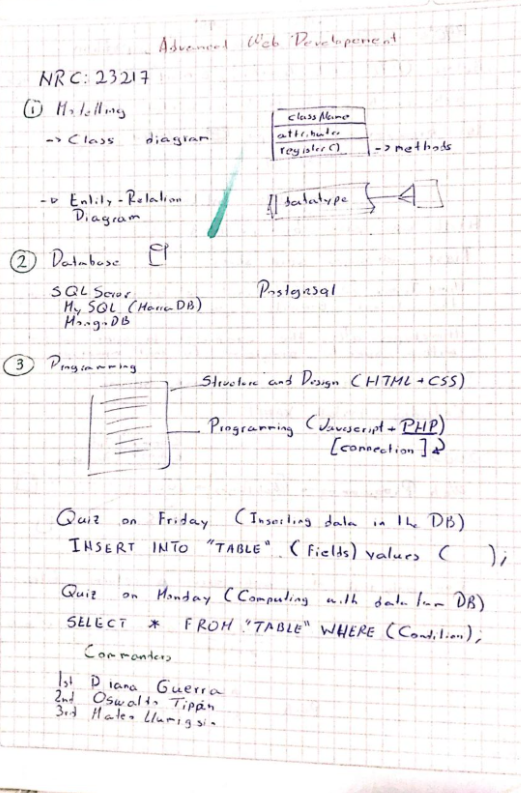 Advanced Web Development
NRC: 23217
① Modelling
-> Class diagram
className
attributes
register() -> methods
-> Entity-Relation
Diagram
datatype
② Database
SQL Server
My SQL (Maria DB)
MongoDB
Postgresql
③ Programming
Structure and Design (HTML + CSS)
Programming (Javascript + PHP)
[connection]
Quiz on Friday (Inserting data in the DB)
INSERT INTO "TABLE" (Fields) values ( );
Quiz on Monday (Computing with data from DB)
SELECT * FROM "TABLE" WHERE (Condition);
1st Diana Guerra
2nd Oswaldo Tippán
3rd Mateo